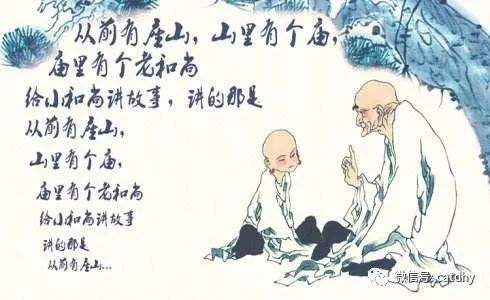 从前有座山，山里有个庙，
庙里有个老和尚
给小和尚讲故事，讲的那是
从前有座山，
山里有个庙，
庙里有个老和尚
给小和尚讲故事
讲的那是
从前有座山...
微信号: catdhy